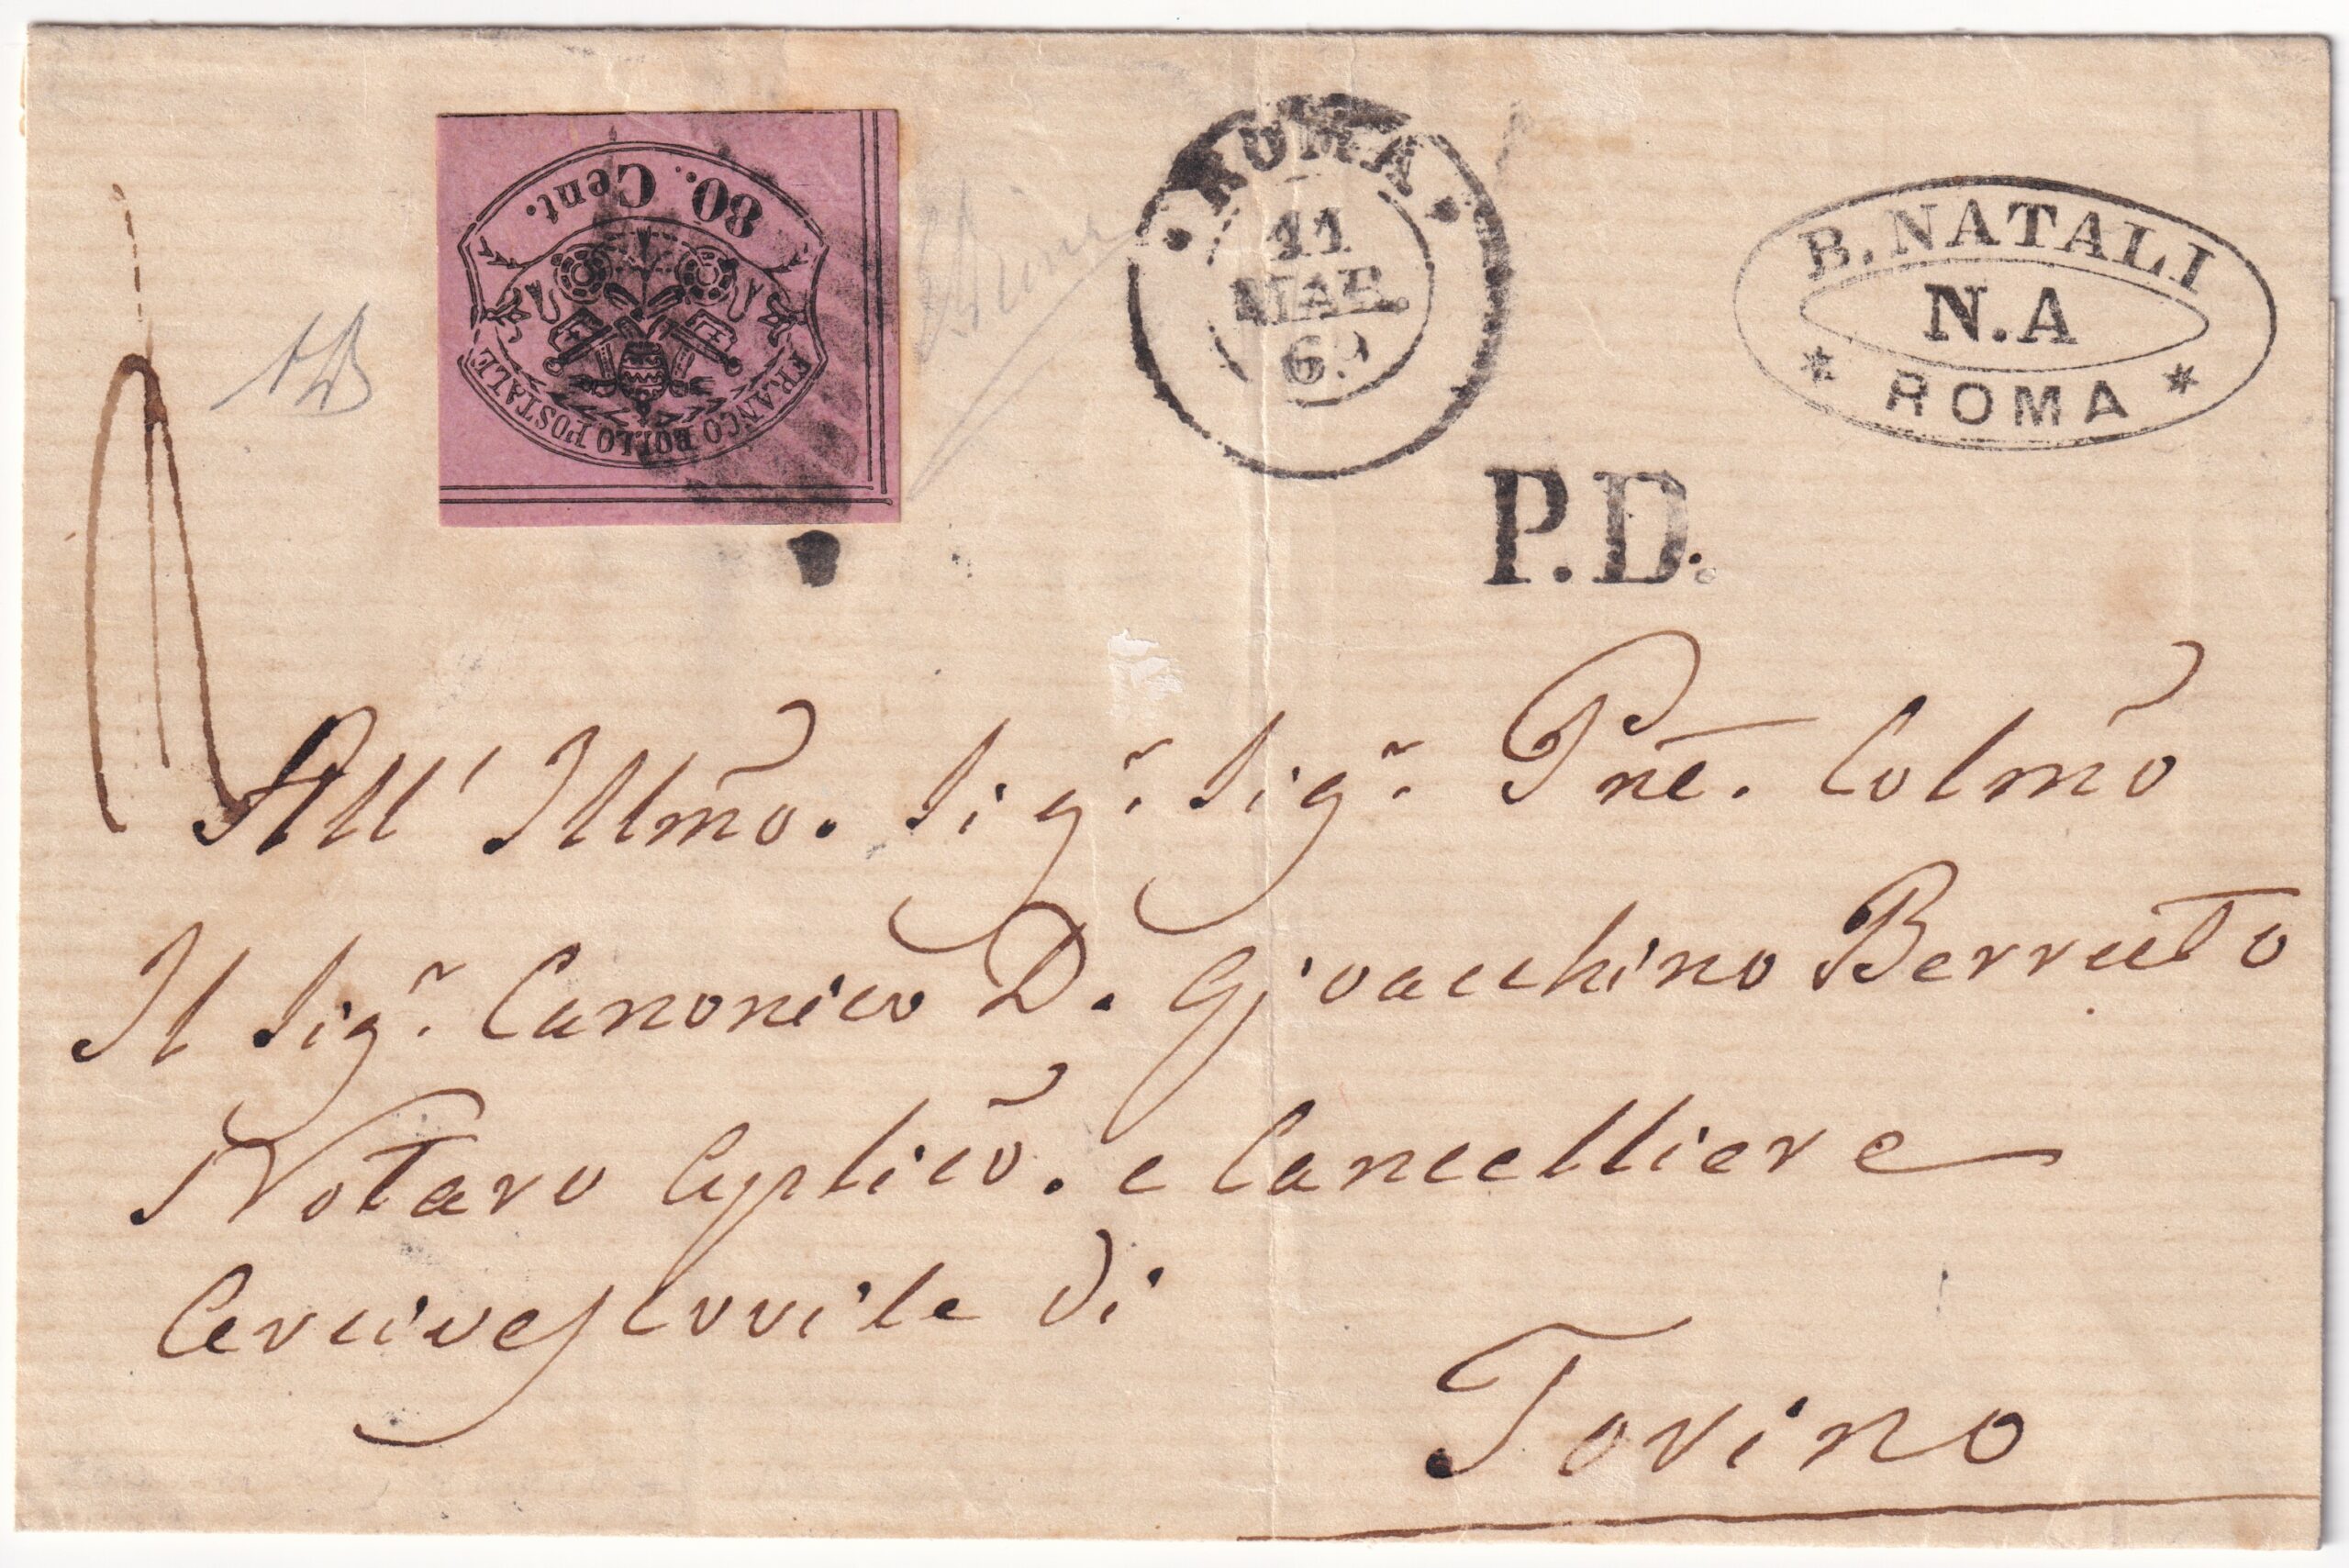 80. Cent.
FRANCO BOLLO POSTALE
ROMA
11
MAR.
69
B. NATALI
N.A
* ROMA *
P.D.
All' Illmo. Sigr. Sigr. Pne. Colmo
Il Sigr. Canonico D. Gioacchino Berruto
Notaro Aplico. e Cancelliere
Arcivescovile di
Torino